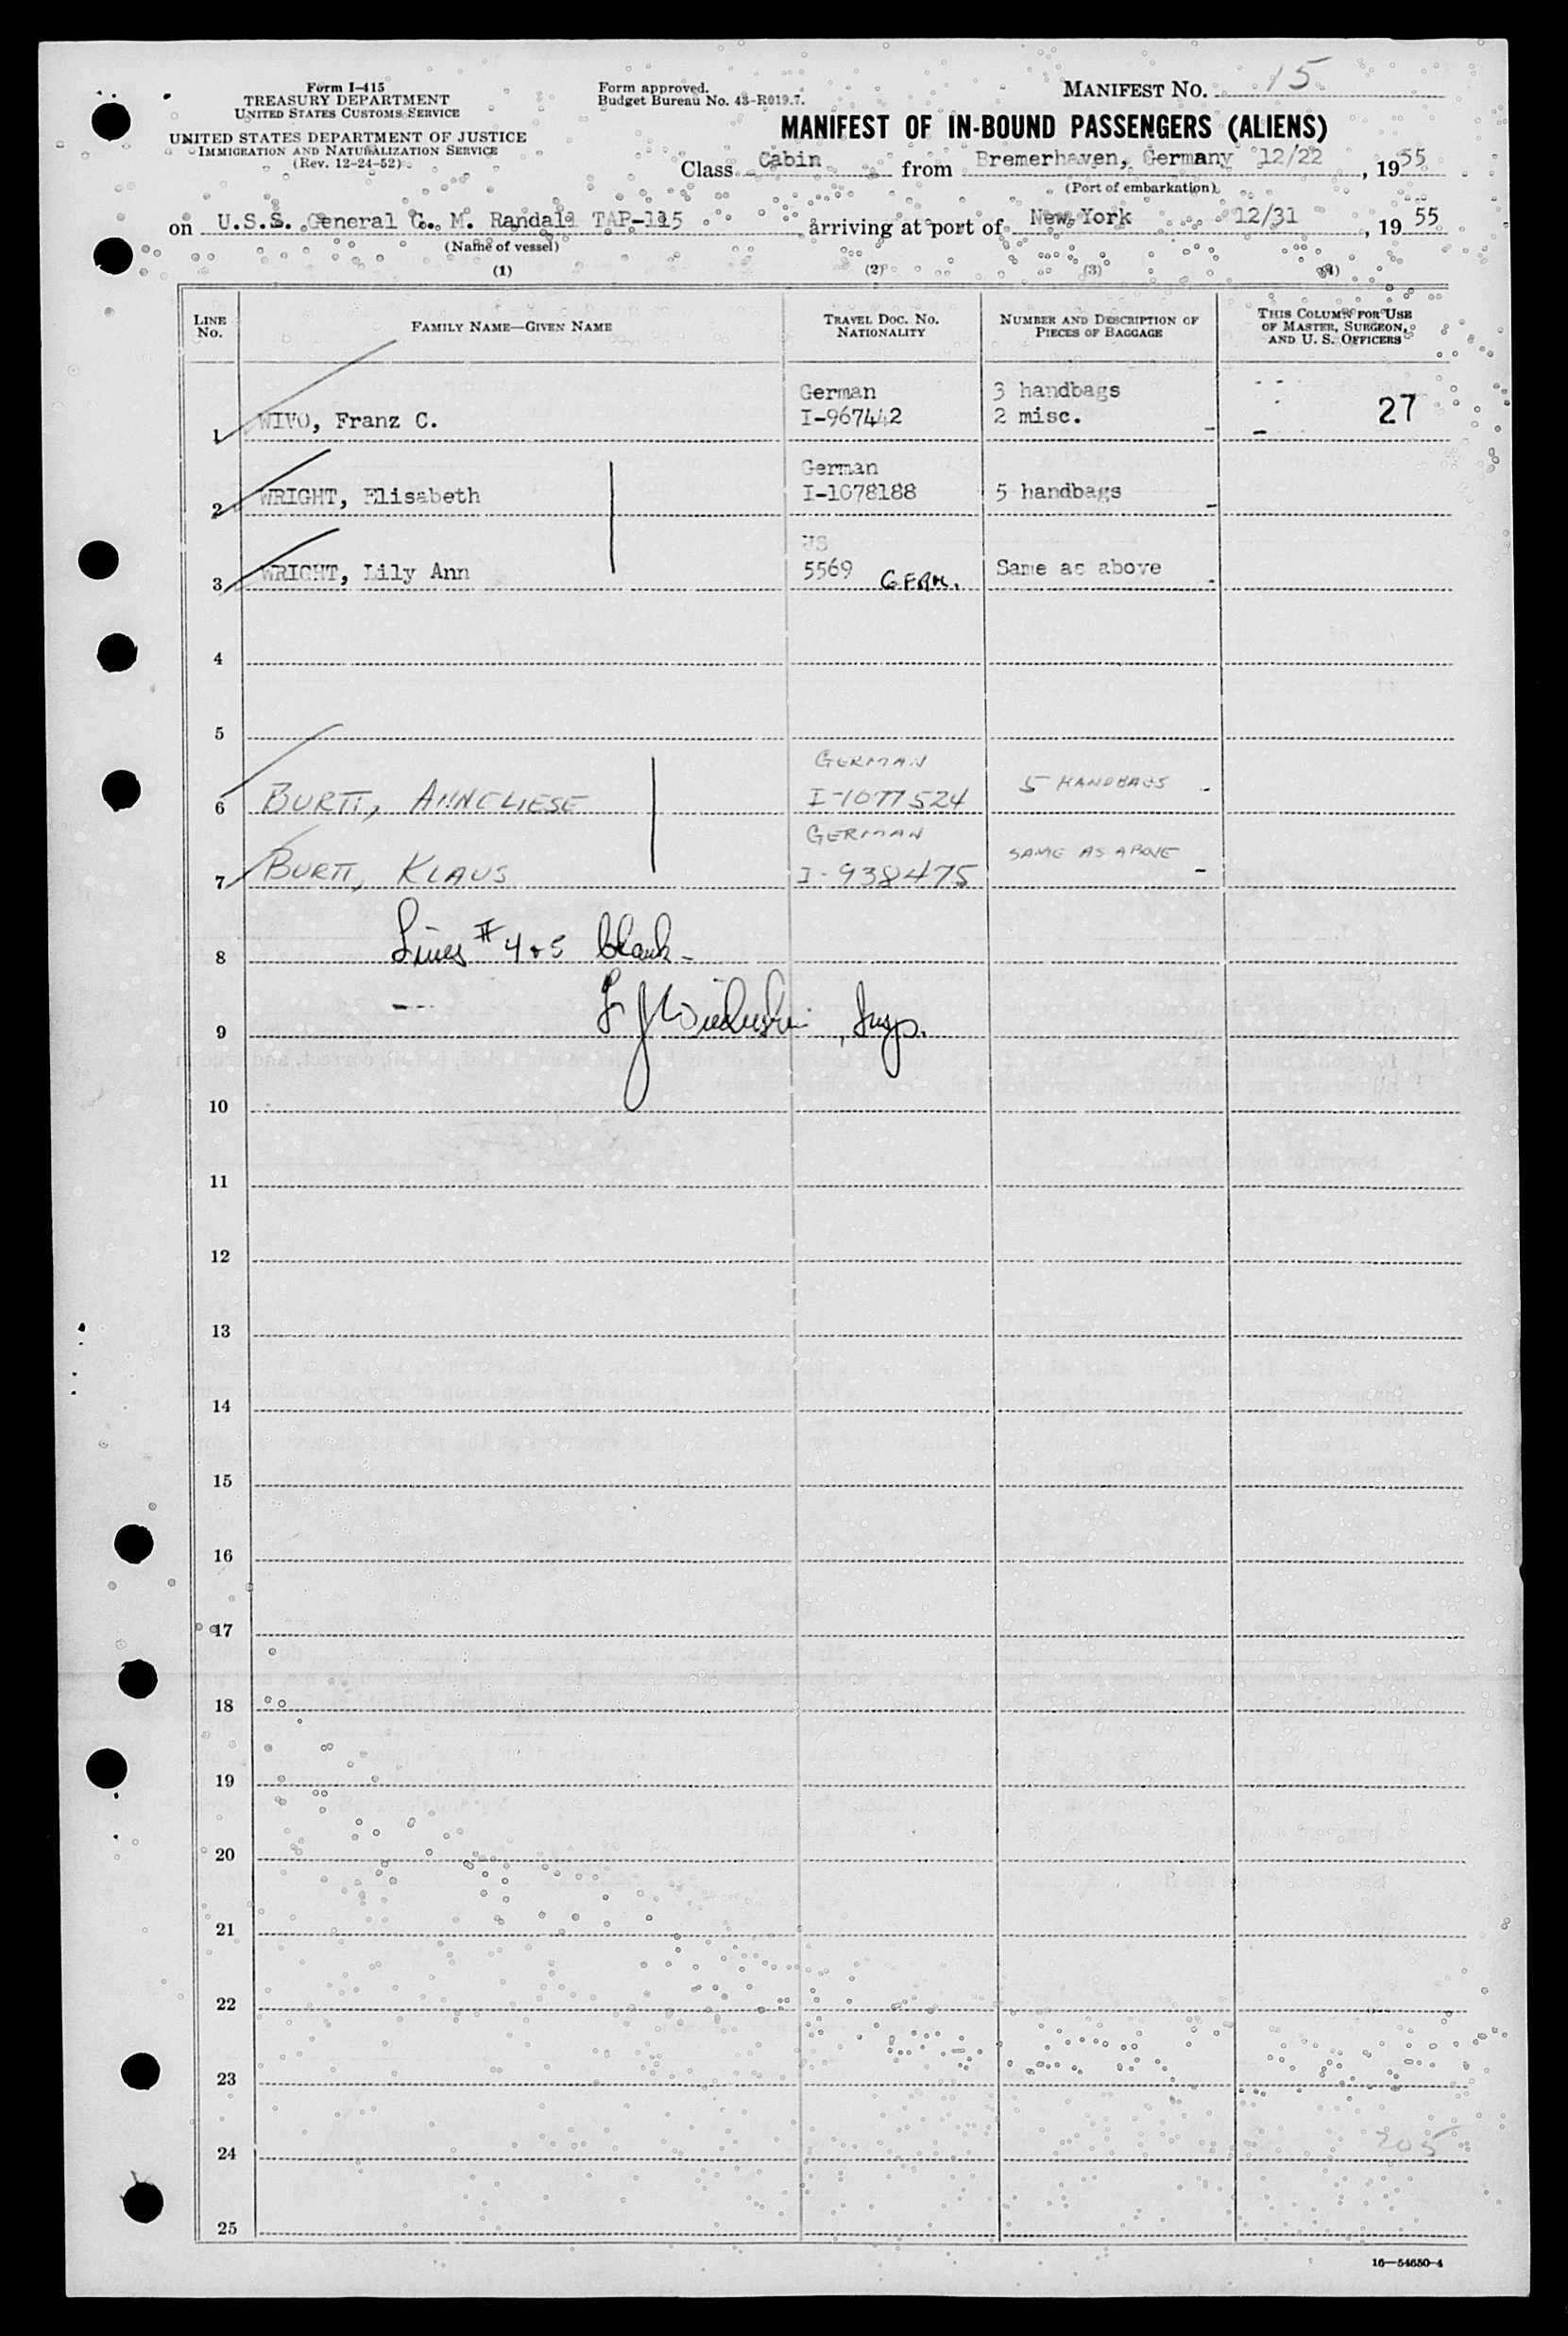 Form I-415
TREASURY DEPARTMENT
UNITED STATES CUSTOMS SERVICE
UNITED STATES DEPARTMENT OF JUSTICE
IMMIGRATION AND NATURALIZATION SERVICE
(Rev. 12-24-52)
Form approved.
Budget Bureau No. 43-R019.7.
MANIFEST NO. 15
MANIFEST OF IN-BOUND PASSENGERS (ALIENS)
Class Cabin from Bremerhaven, Germany 12/22, 1955
(Port of embarkation)
on U.S.S. General G. M. Randall TAP-115 arriving at port of New York 12/31, 1955
(Name of vessel)
(1) (2) (3) (4)
LINE NO. FAMILY NAME—GIVEN NAME TRAVEL DOC. NO. NATIONALITY NUMBER AND DESCRIPTION OF PIECES OF BAGGAGE THIS COLUMN FOR USE OF MASTER, SURGEON, AND U. S. OFFICERS
German 3 handbags
1 WIVO, Franz C. I-967442 2 misc. 27
German
2 WRIGHT, Elisabeth I-1078188 5 handbags
US
3 WRIGHT, Lily Ann 5569 GERM. Same as above
4
5
GERMAN
6 BURTT, ANNELIESE I-1077524 5 HANDBAGS
GERMAN
7 BURTT, KLAUS I-938475 SAME AS ABOVE
8 Lines #4+5 blank-
9 , Insp.
10
11
12
13
14
15
16
17
18
19
20
21
22
23
24 205
25
16—54650-4